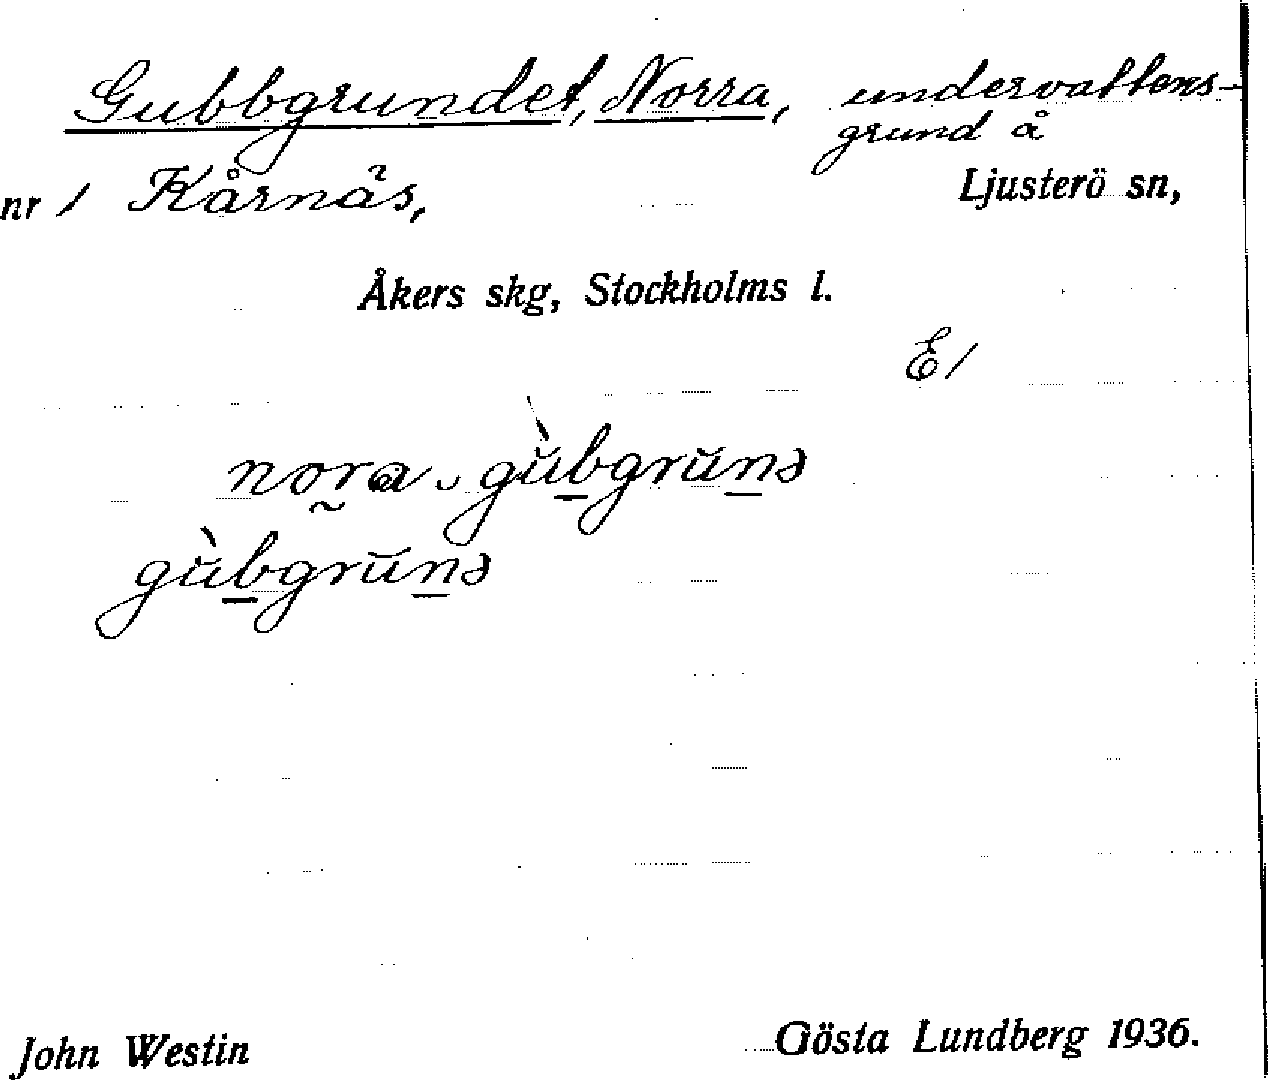 Gubbgrundet, Norra, undervattens-
grund å
nr 1 Kårnäs, Ljusterö sn,
Åkers skg, Stockholms l.
E1
nora gùbgrŭnə
gùbgrŭnə
John Westin Gösta Lundberg 1936.